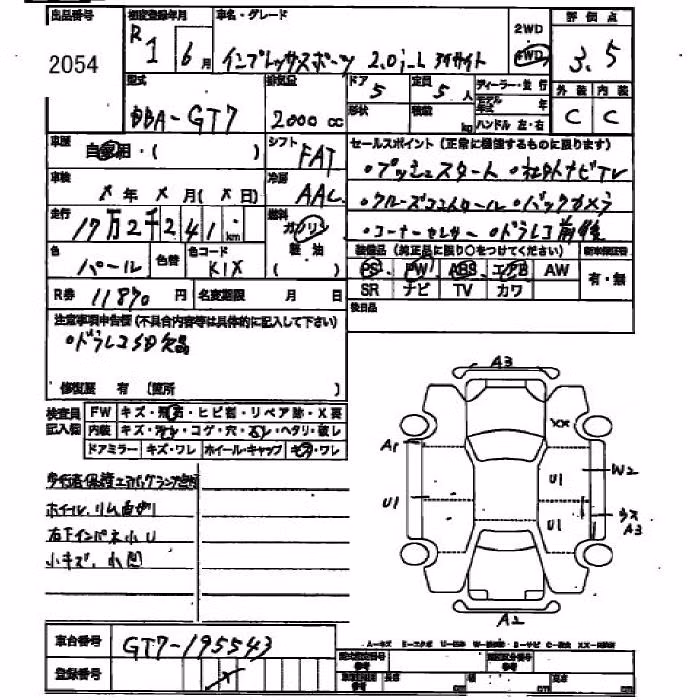 出品番号 初度登録年月 車名・グレード 評価点
2054 R1 6月 インプレッサスポーツ 2.0i-L アイサイト 2WD 4WD 3.5
型式 排気量 ドア 定員 ディーラー・並行 外装 内装
DBA-GT7 2000cc 5 5人 モデル年式 年 C C
形状 積載 kg ハンドル 左・右
車歴 自家用・( ) シフト FAT セールスポイント(正常に機能するものに限ります)
車検 X年X月(X日) 冷房 AAC
○プッシュスタート ○社外ナビTV
○クルーズコントロール ○バックカメラ
○コーナーセンサー ○ドラレコ前後
走行 17万2千241km 燃料 ガソリン 軽油 ( )
色 パール 色替 色コード K1X
装備品(純正品に限り○をつけてください) 新車保証書
PS PW ABS エアB AW 有・無
SR ナビ TV カワ
R券 11870円 名変期限 月 日 後日品
注意事項申告欄(不具合内容等は具体的に記入して下さい)
○ドラレコSD欠品
修復歴 有 (箇所 )
検査員記入欄 FW キズ・飛石・ヒビ割・リペア跡・X要
内装 キズ・汚レ・コゲ・穴・スレ・ヘタリ・破レ
ドアミラー キズ・ワレ ホイール・キャップ キズ・ワレ
ホイール、リム
右下インパネ小U
小キズ、小凹
A3
XX
A1
W2
U1
U1
U1
ウス
A3
A2
A-キズ E-エクボ U-凹み W-波 S-サビ C-腐食 XX-交換済
車台番号 GT7-195543
登録番号